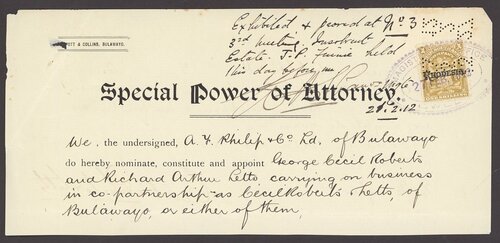 & COLLINS, BULAWAYO.
Exhibited & proved at No 3
3rd meeting Insolvent
Estate J.P. held
this day before me
RHODESIA
21.2.12
Special Power of Attorney.
We, the undersigned, A. F. Philip & Co Ld. of Bulawayo
do hereby nominate, constitute and appoint George Cecil Roberts
and Richard Arthur Letts carrying on business
in co-partnership as Cecil Roberts & Letts, of
Bulawayo, or either of them,